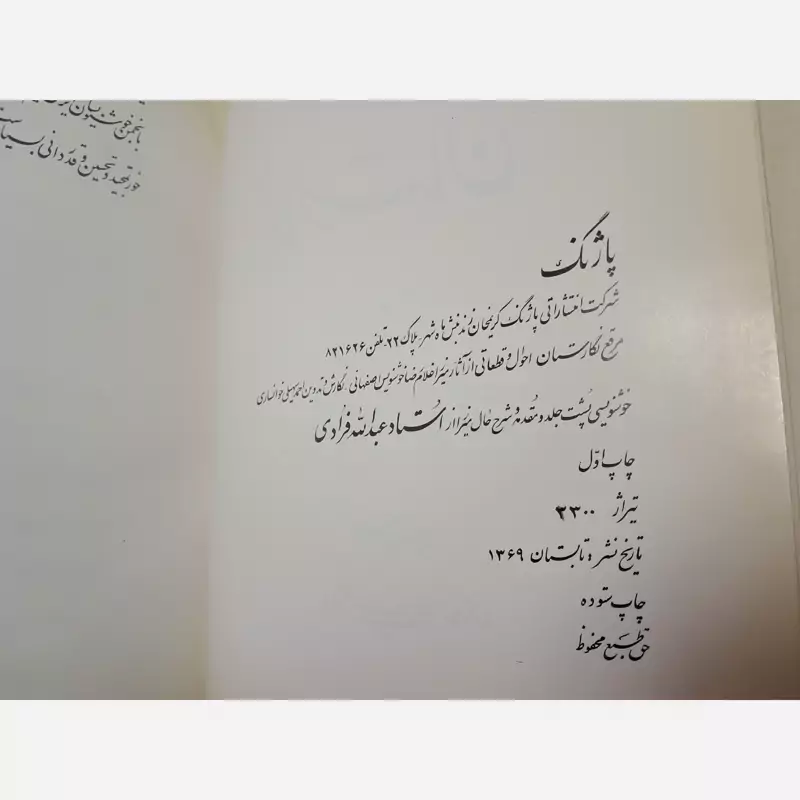 پاژنگ
شرکت انتشاراتی پاژنگ کریمخان زند نبش ماهشهر پلاک ۲۲ تلفن ۸۲۱۶۲۶
مرقع نگارستان احوال و قطعاتی از آثار میرزا غلامرضا خوشنویس اصفهانی نگارش و تدوین احمد سهیلی خوانساری
خوشنویسی پشت جلد و مقدمه و شرح حال میرزا از استاد عبدالله فرادی
چاپ اول
تیراژ ۳۳۰۰
تاریخ نشر: تابستان ۱۳۶۹
چاپ ستوده
حق طبع محفوظ
با انجمن خوشنویسان
تمجید و تحسین و قدردانی بسیار است